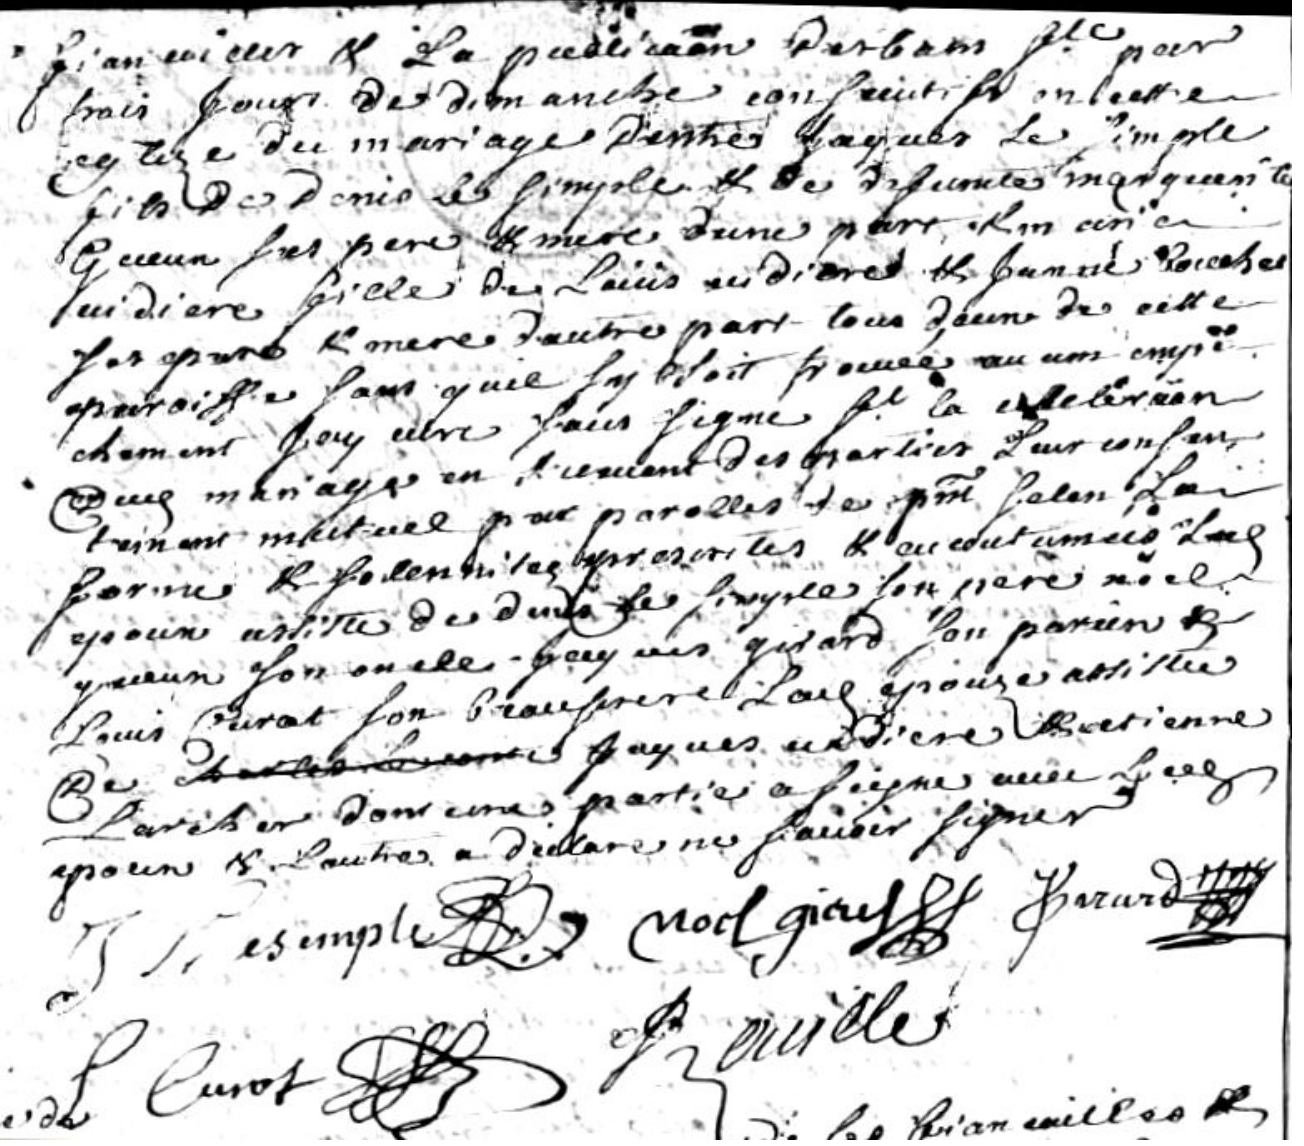 fiancailles & La publicaõn Desbans fte par
trois jours de dimanche consecutifs en cette
eglize du mariage Dentre Jaques Le Simple
fils De Denis le simple & de defuncte marguerite
Gueun ses pere & mere dune part & marie
uidiere fille de Louis uidiere & Janne
ses pere & mere dautre part tous deux de cette
paroisse sans quil sy soit trouué aucun empe
chement Jay cure sous signe ft la celebraõn
Dud mariage en receuant des parties Leur consen
tement mutuel par parolles de pñt selon La
forme & solennites prescrites & accoutumees Led
epoux assiste de denis le simple son pere noel
gueun son oncle Jaques girard son parain &
Louis Curot son beaufrere Lad epouze assistee
De Jaques uidiere & etienne
Larcher dont une partie a signe auec Led
epoux & Lautre a declare ne sauoir signer
Lesimple noel girard
L Curot
de les fiancailles &